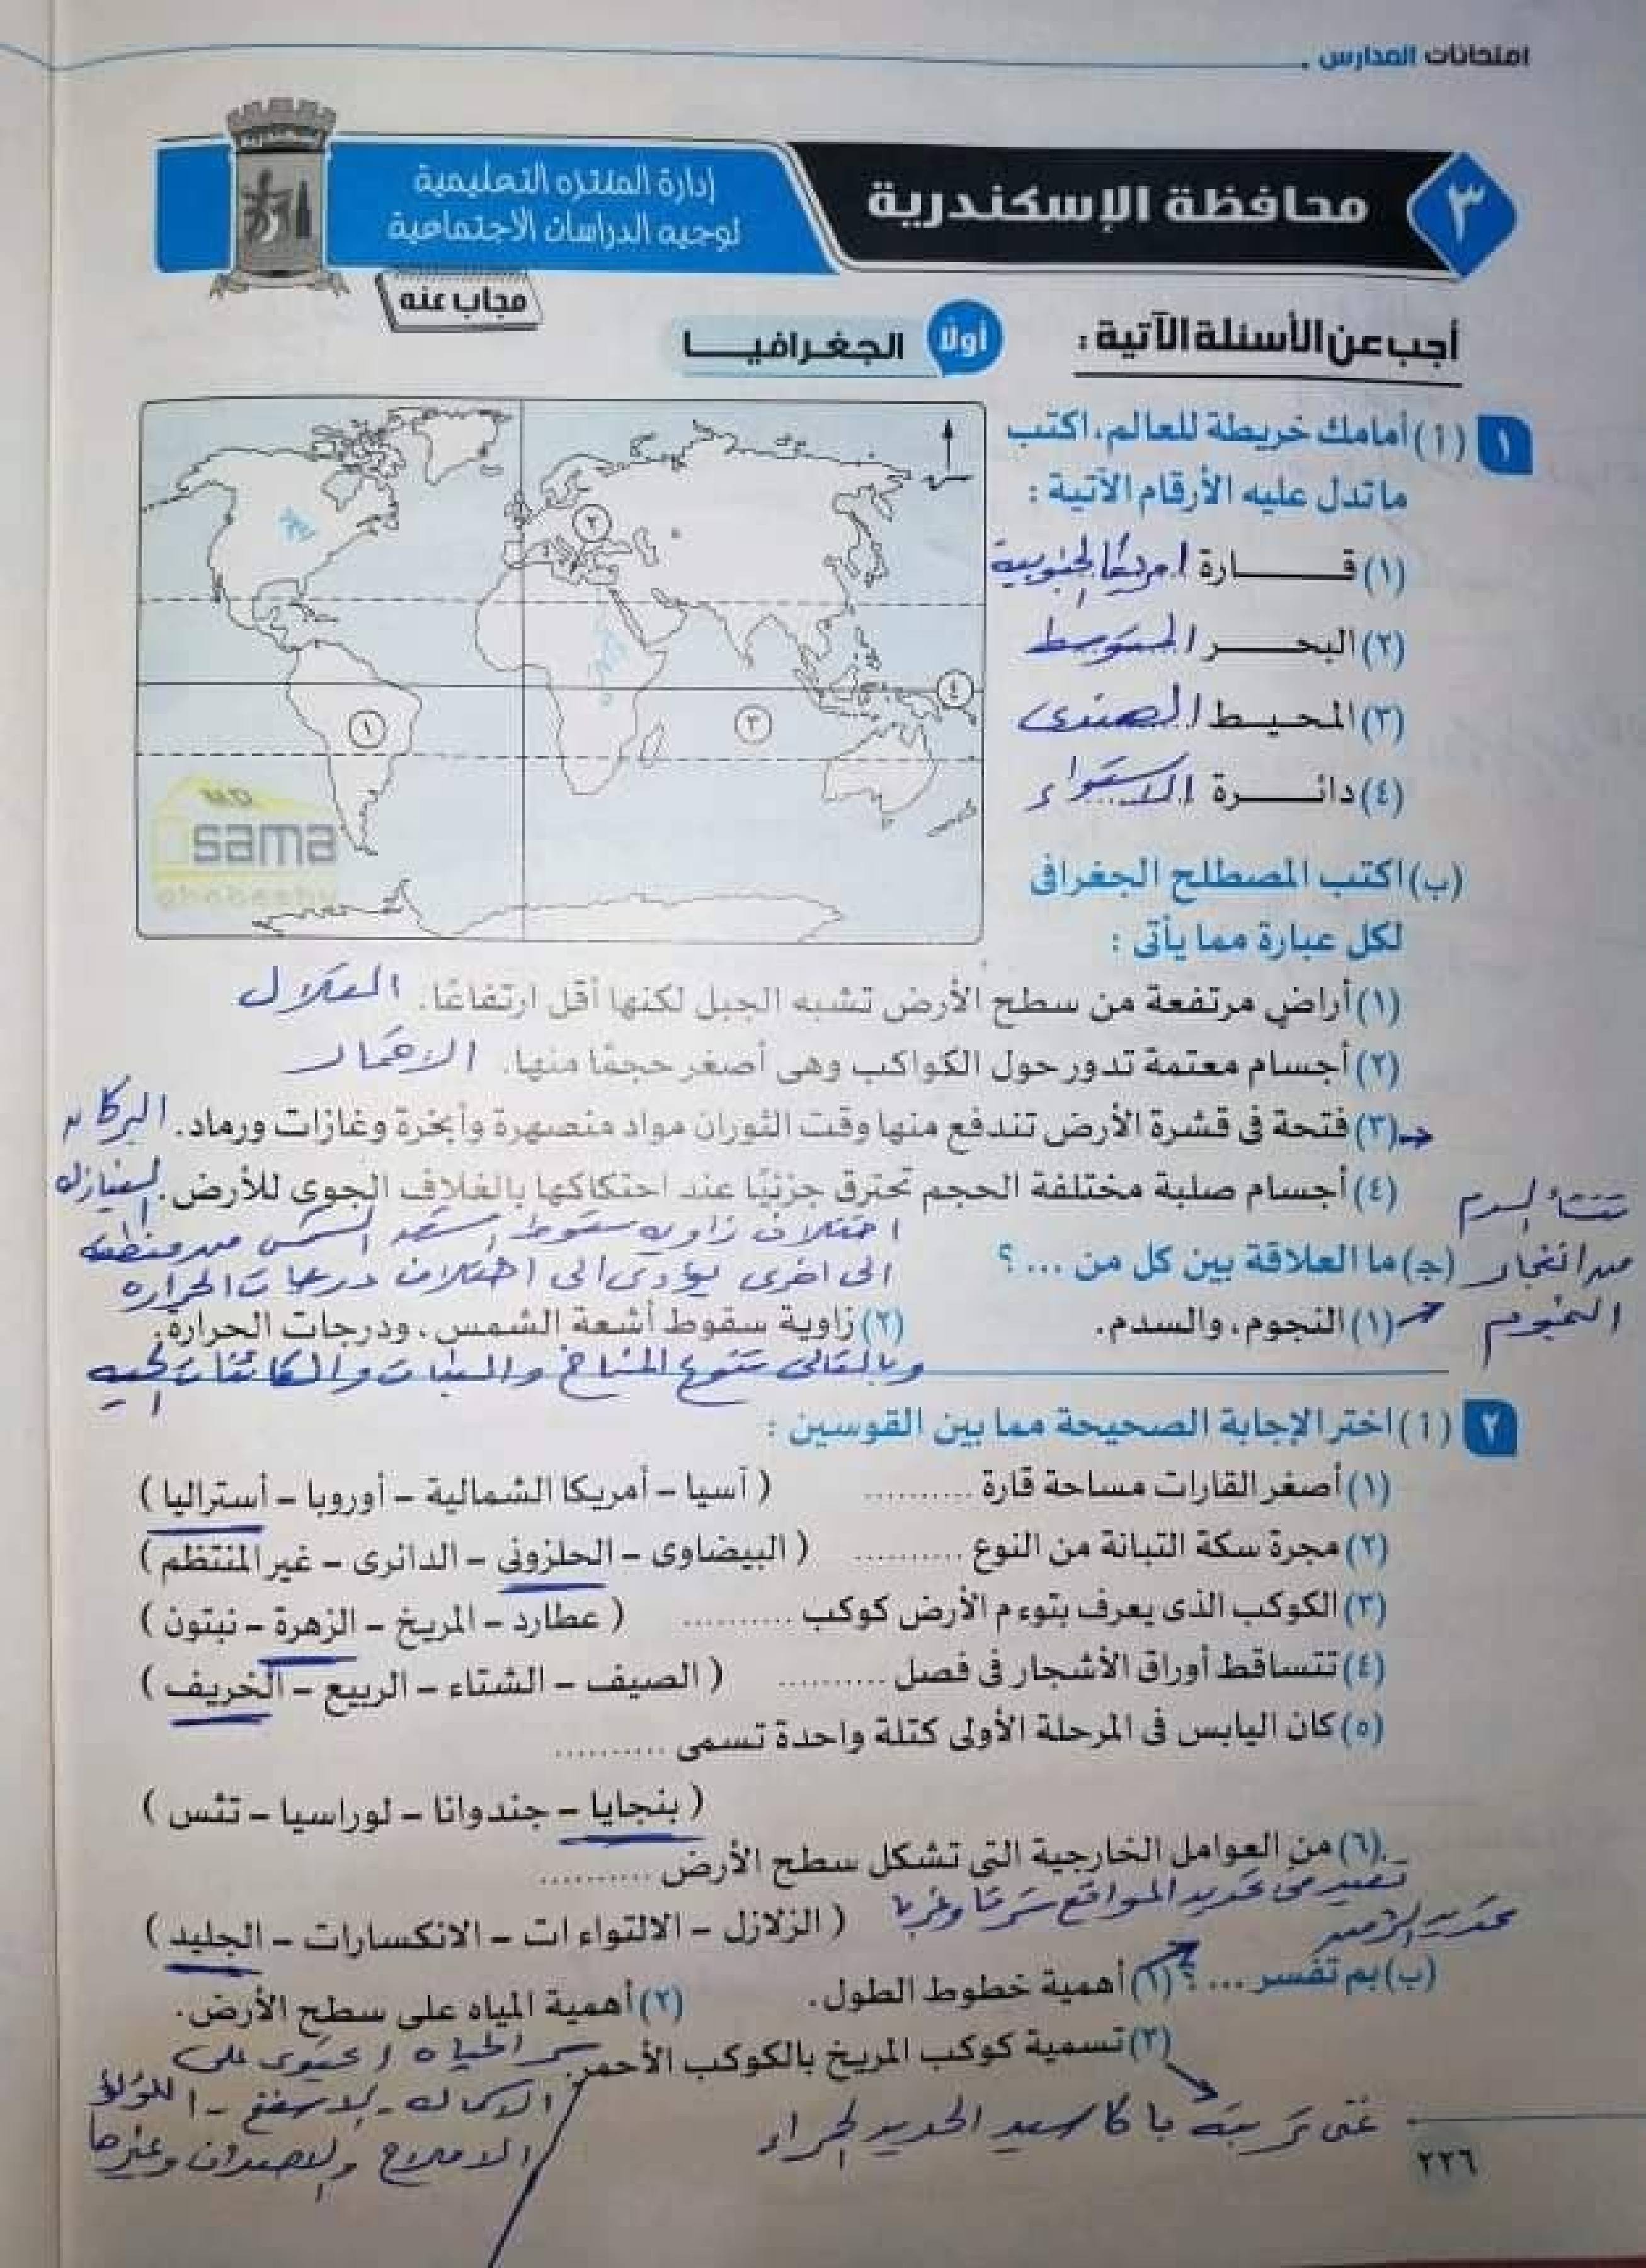 امتحانات المدارس
٣ محافظة الإسكندرية
إدارة المنتزه التعليمية
توجيه الدراسات الاجتماعية
مجاب عنه
أجب عن الأسئلة الآتية :
أولا الجغرافيا
١ (أ) أمامك خريطة للعالم، اكتب
ما تدل عليه الأرقام الآتية :
(١) قارة امريكا الجنوبية
(٢) البحر المتوسط
(٣) المحيط الهندى
(٤) دائرة الاستواء
٢
١
٣
٤
M.D.
sama
(ب) اكتب المصطلح الجغرافى
لكل عبارة مما يأتى :
(١) أراضٍ مرتفعة من سطح الأرض تشبه الجبل لكنها أقل ارتفاعًا. التلال
(٢) أجسام معتمة تدور حول الكواكب وهى أصغر حجمًا منها. الاقمار
(٣) فتحة فى قشرة الأرض تندفع منها وقت الثوران مواد منصهرة وأبخرة وغازات ورماد. البركان
(٤) أجسام صلبة مختلفة الحجم تحترق جزئيًا عند احتكاكها بالغلاف الجوى للأرض. النيازك
(جـ) ما العلاقة بين كل من ... ؟
(١) النجوم، والسدم.
تنشأ السدم
من انفجار
النجوم
(٢) زاوية سقوط أشعة الشمس، ودرجات الحرارة.
اختلاف زاوية سقوط اشعة الشمس من منطقة
الى اخرى يؤدى الى اختلاف درجات الحرارة
وبالتالى تنوع المناخ والنبات والكائنات الحية
٢ (أ) اختر الإجابة الصحيحة مما بين القوسين :
(١) أصغر القارات مساحة قارة .......... ( آسيا – أمريكا الشمالية – أوروبا – أستراليا )
(٢) مجرة سكة التبانة من النوع .......... ( البيضاوى – الحلزونى – الدائرى – غير المنتظم )
(٣) الكوكب الذى يعرف بتوءم الأرض كوكب .......... ( عطارد – المريخ – الزهرة – نبتون )
(٤) تتساقط أوراق الأشجار فى فصل .......... ( الصيف – الشتاء – الربيع – الخريف )
(٥) كان اليابس فى المرحلة الأولى كتلة واحدة تسمى ..........
( بنجايا – جندوانا – لوراسيا – تثس )
(٦) من العوامل الخارجية التى تشكل سطح الأرض ..........
( الزلازل – الالتواءات – الانكسارات – الجليد )
تفيد فى تحديد المواقع شرقا وغربا
تحديد الزمن
(ب) بم تفسر ... ؟ (١) أهمية خطوط الطول. (٢) أهمية المياه على سطح الأرض.
(٣) تسمية كوكب المريخ بالكوكب الأحمر.
سر الحياة / تحتوى على
الاسماك - الاسفنج - اللؤلؤ
الاملاح والاصداف وغيرها
غنى تربته باكاسيد الحديد الحمراء
٢٢٦